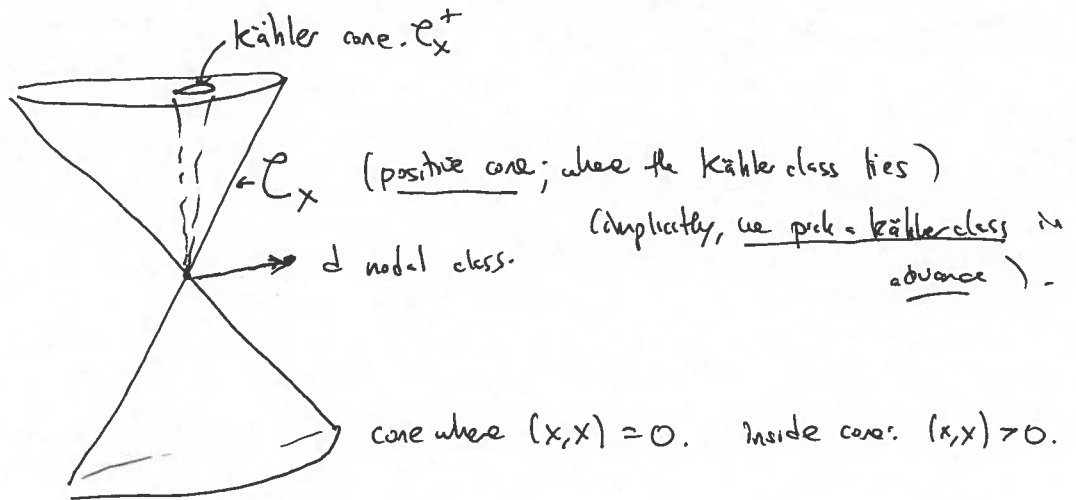 Kähler cone. C_X^+
C_X (positive cone; where the Kähler class lies)
(implicitly, we pick a kähler class in
advance).
d nodal class.
cone where (x,x) = 0. Inside cone: (x,x) > 0.